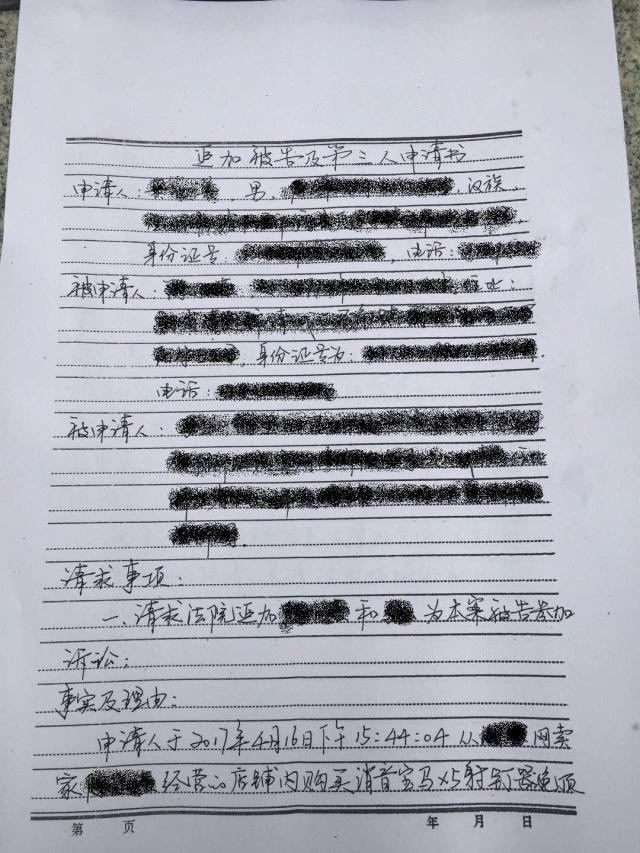 追加被告及第三人申请书
申请人: ，男， ，汉族，
身份证号: ，电话:
被申请人: 住址:
，身份证号为:
电话:
被申请人:
请求事项:
一、请求法院追加 和 为本案被告参加
诉讼;
事实及理由:
申请人于2017年4月16日下午15:44:04从 网卖
家 经营的店铺内购买消音宝马X5射钉器
第 页 年 月 日